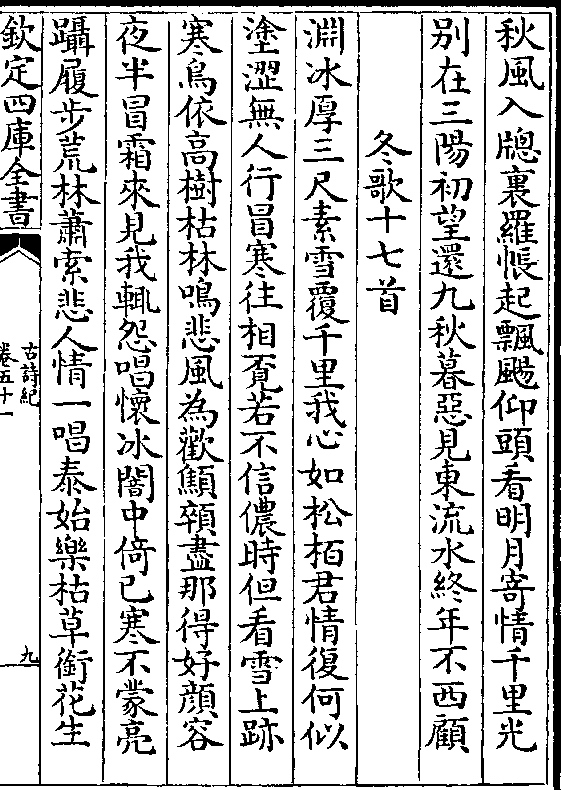 秋風入牕裏羅帳起飄颺仰頭看明月寄情千里光
别在三陽初望還九秋暮惡見東流水終年不西顧
冬歌十七首
淵冰厚三尺素雪覆千里我心如松栢君情復何似
塗澀無人行冒寒往相覔若不信儂時但看雪上跡
寒鳥依高樹枯林鳴悲風為歡顦顇盡那得好顔容
夜半冒霜來見我輒怨唱懷冰闇中倚已寒不蒙亮
躡履步荒林蕭索悲人情一唱泰始樂枯草銜花生
欽定四庫全書
古詩紀
卷五十一
九